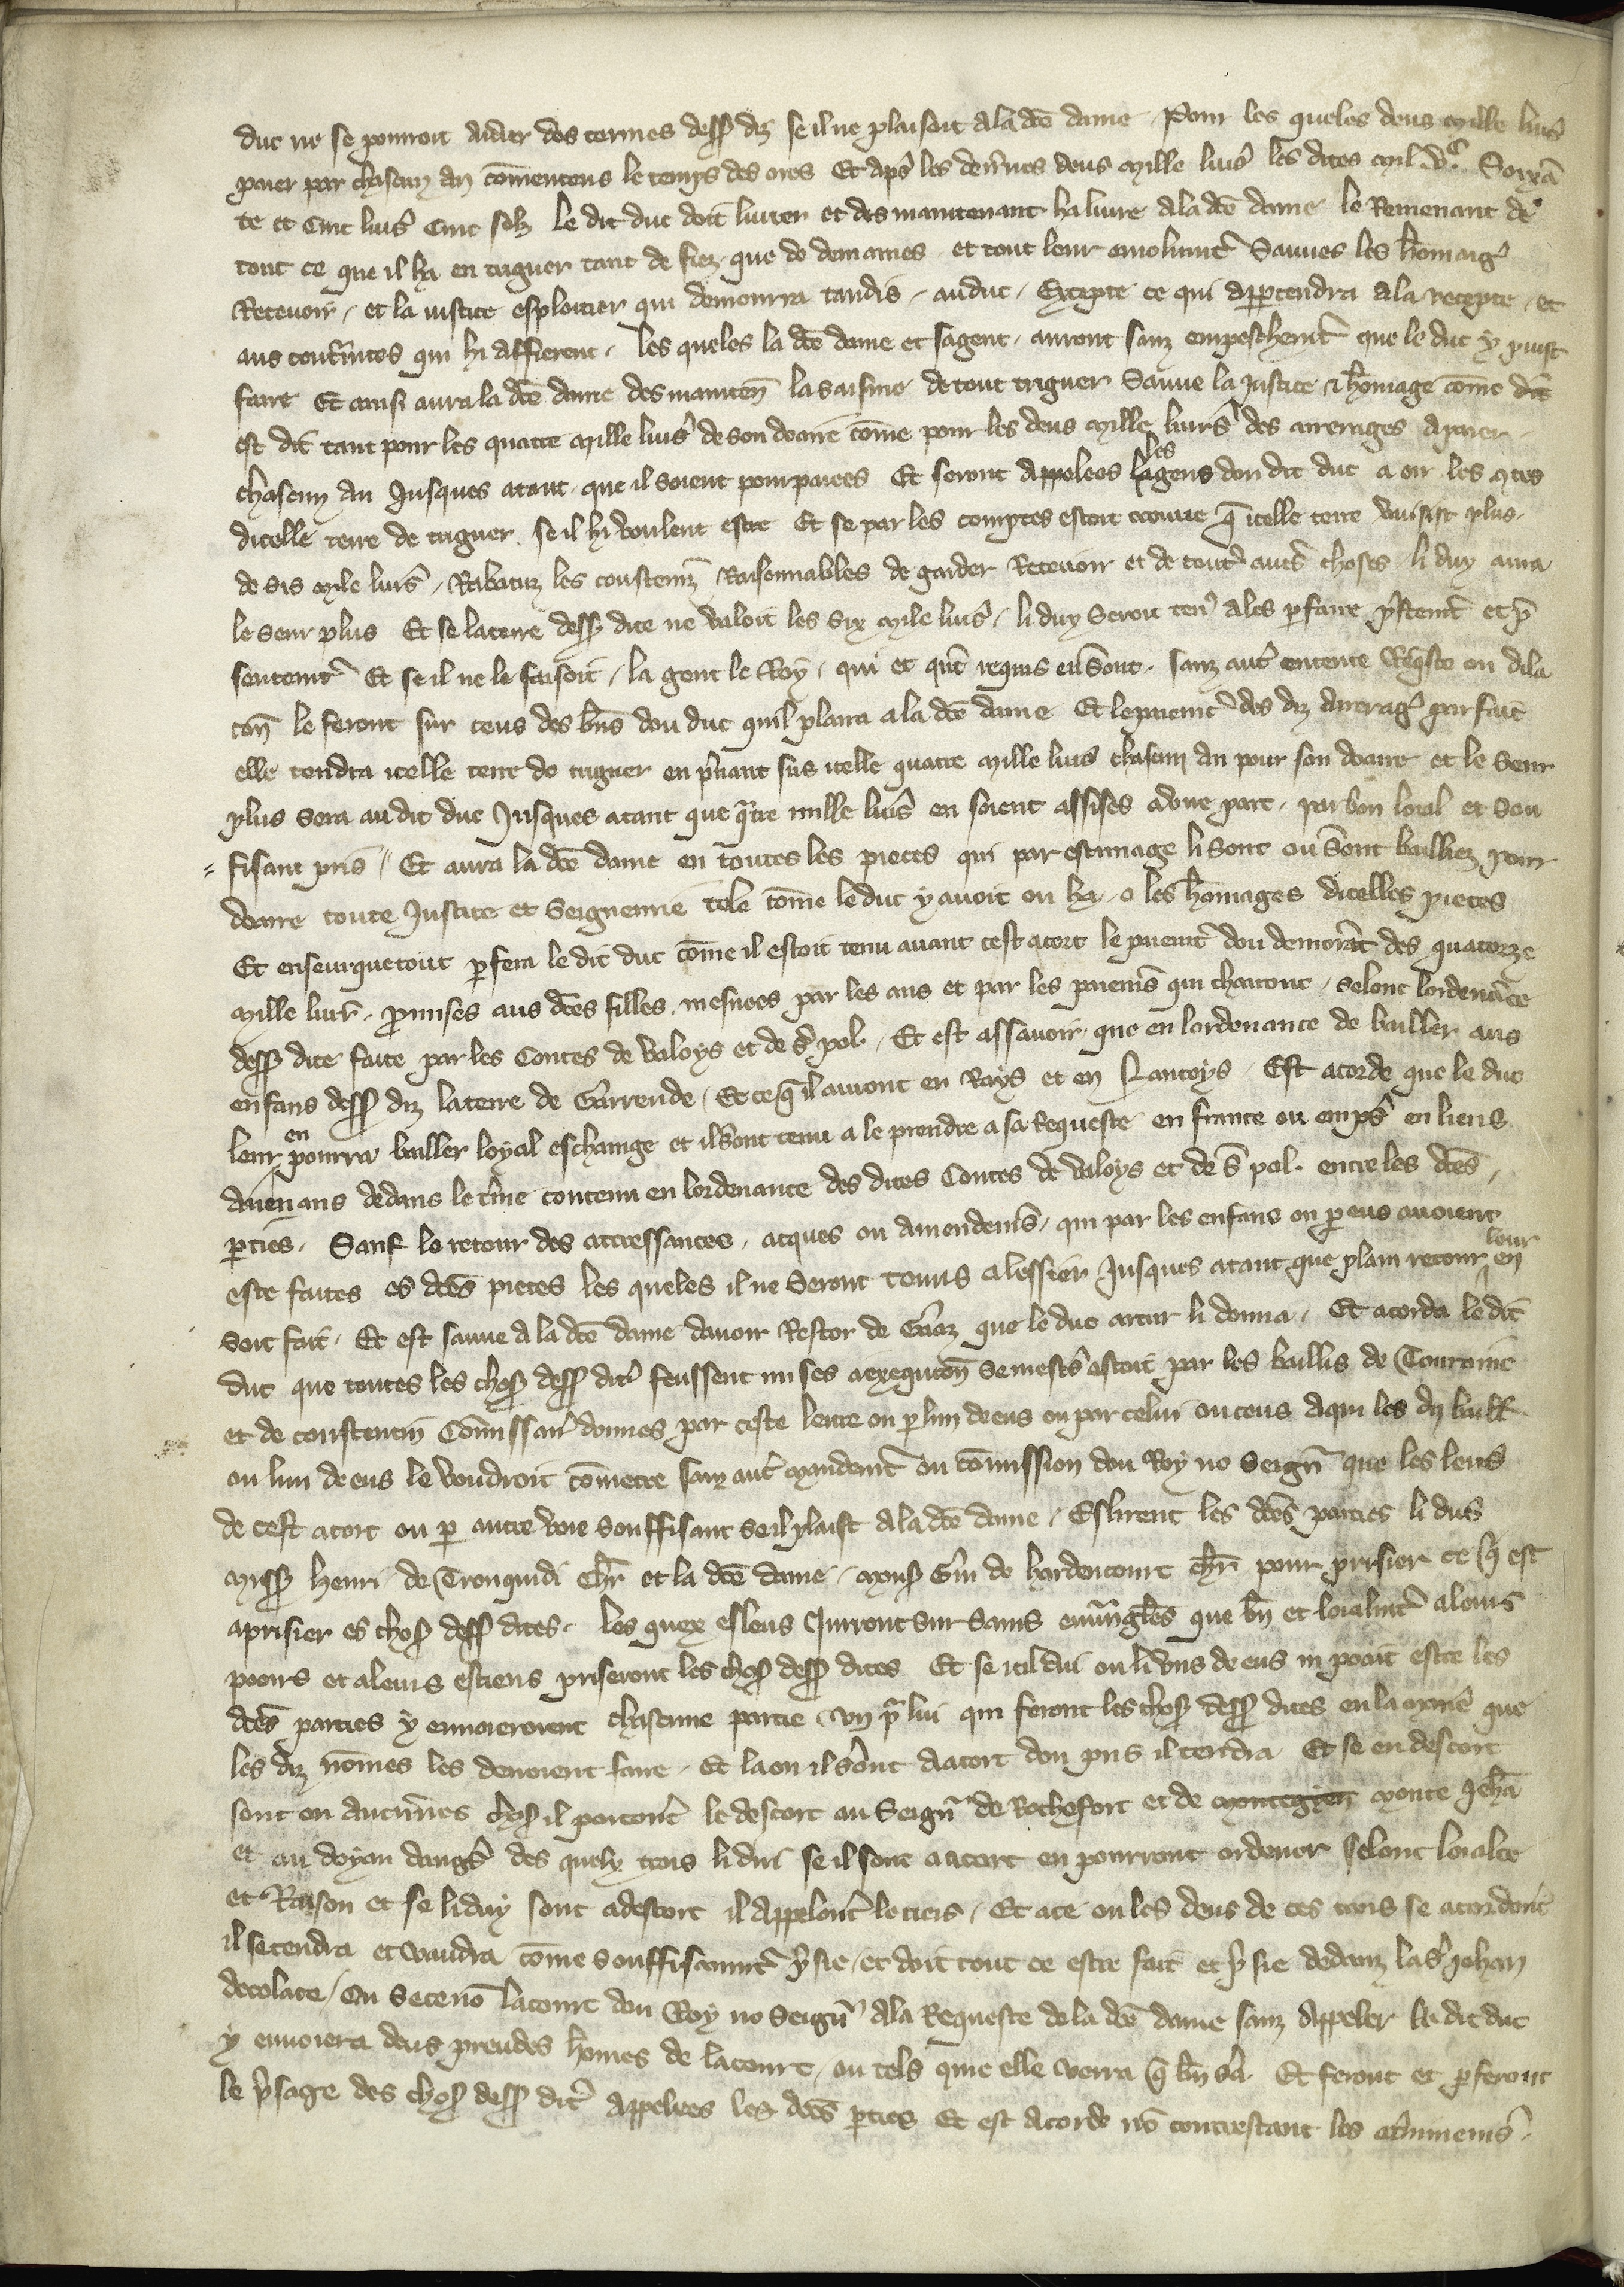 duc ne se pourroit aider des termes dessꝰ diz se il ne plaisoit a la dc̄e dame. Pour les queles deus mille liur̄
paier par chascun an cōmentens le temps des ores Et apr̄s les derr̄nes deus mille liur̄ les dites mil .v.c Soixā
te et Cinc liur̄ Cinc solz le dit duc doit liurer et des maintenant ha liure a la dc̄e dame le Remenant de
tout ce que il ha en triguer tant de fiez que de demaines et tout leur emolumt̄ Sauues les hōmaiḡ
Receuoir, et la iustice esploitier qui demourra tandis, au duc, Excepte ce qui appertendra a la recepte, et
aus contr̄intes qui hi affierent, les queles la dc̄e dame et sa gent, auront sanz empeschemt̄ que le duc y puist
faire Et ainsi aura la dc̄e dame des mainten̄ la saisine de tout triguer Sauue la Justice & hōmage cōme dit
est dit tant pour les quatre mille liur̄ de son doaire cōme pour les deus mille liurs̄ des arrerages a paier
chascun an Jusques a tant que il soient pourpaiees Et seront appelees les gens dou dit duc a oir les 9tes
dicelle terre de triguer se il hi voulent estre Et se par les comptes estoit trouue q̄ icelle terre vausist plus
de sis mile liurs̄, Rabatuz les coustemz̄ Raisonnables de garder Receuoir et de tout̄ autr̄ choses li dux aura
le seur plus Et se la terre dessꝰ dite ne valoit les six mile liur̄, li dux seroit ten̄ a les p̱faire p̄stemt̄ et p̄
sentemt̄ Et se il ne le faisoit, la gent le Roy, qui et qn̄t requis en sront, sanz autr̄ entente Req̄ste ou dila
con̄ le feront sur ceus des bn̄s dou duc quil plaira a la dc̄e dame Et le paiemt̄ des diz arreraḡ parfait
elle tendra icelle terre de triguer en pr̄nant sus icelle quatre mille liur̄ chascun an pour son doaire et le seur
plus sera au dit duc Jusques a tant que q̄tre mille liur̄ en soient assises a vne part, par bon loial et sou
fisant pris, Et aura la dc̄e dame en toutes les pieces qui par estimage li sont ou sr̄ont bailliez pour
doaire toute Justice et Seigneurie tele cōme le duc y auoit ou ha, o les hōmages dicelles pieces
Et enseurquetout p̱fera le dit duc cōme il estoit tenu auant cest acort le paiemt̄ dou demorāt des quatorze
mille liur̄, promises aus dc̄es filles, mesurees par les ans et par les paiems̄ qui charront, selont lordenāce
dessꝰ dite faite par les Contes de Valoys et de S̄ pol. Et est assauoir, que en lordenance de bailler aus
enfans dessꝰ diz la terre de Garrende, Et ce q̄ il auront en Rays et en Nantoys, Est acorde que le duc
leur en pourra bailler loyal eschange et il sr̄ont tenu a le prendre a sa Requeste en france ou emprs̄ en liens
auenans dedans le tr̄me contenu en lordenance des dites Contes de Valoys et de S̄ pol. entre les dc̄es,
p̱ties, Sauf le retour des accressances, acques ou amendems̄, qui par les enfans ou p̱ eus auoient
este faites es dc̄es pieces les queles il ne seront tenus a lessier Jusques a tant que plain retour leur en
soit fait, Et est sauue a la dc̄e dame dauoir Restor de que le duc artur li donna, Et acorda le dit
duc que toutes les chosꝰ dessꝰ dit̄ feussent mises a exequcōn se mestr̄ estoit par les baillis de Touraine
et de coustentin Cōmissair̄ donnes par ceste lettre ou p̱ lun de eus ou par celui ou ceus a qui les dz baill̄
ou lun de eus le voudroit cōmetre sanz autr̄ mandemt̄ ou cōmission dou Roy no Seign̄ que les letrs̄
de cest acort ou p̱ autre voie souffisant se il plaist a la dc̄e dame, Eslirent les dc̄es parties li dus
Missꝰ Henri de Tronguidi Chr̄ et la dc̄e dame, monsꝰ Gm̄ de hardencourt chr̄ pour prisier ce q̄ est
a prisier es chosꝰ dessꝰ dites, les quex esleus Jurront sur Sains euuāgles que bn̄ et loialmt̄ a leurs
pooirs et a leurs esciens priseront les chosꝰ dessꝰ dites Et se icil dui ou li vns de eus ni poait estre les
dc̄es parties y enuoieroient chascune partie vn p̄r lui qui feront les chosꝰ dessꝰ dites en la mnr̄e que
les diz nōmes les deuoient faire, Et la ou il sr̄ont a acort dou pris il tendra Et se en descort
sont en aucunes chosꝰ il porteront le descort au Seign̄r de Rochefort et de montegien monte Jehā
et au doyan dangrs̄ des quelx trois li dui se il sont a acort en pourront ordener selont loialte
et Raison et se li dux sont a descort il appelont̄ le tiers, Et a ce ou les deus de ces trois se acordont̄
il se tendra et vaudra cōme souffisaumt̄ pr̄sie, et doit tout ce estre fait et pr̄sie dedanz la S̄ Johan
decolace, Ou se ce nō la court dou Roy no Seign̄ a la Requeste de la dc̄e dame sanz appeler le dit duc
y enuoiera deus preudes hōmes de la court, ou tels que elle verra q̄ bn̄ sr̄a Et feront et p̱feront
le pr̄sage des chosꝰ dessꝰ dit̄ appelees les dc̄es p̱ties Et est acorde nō contrestant les